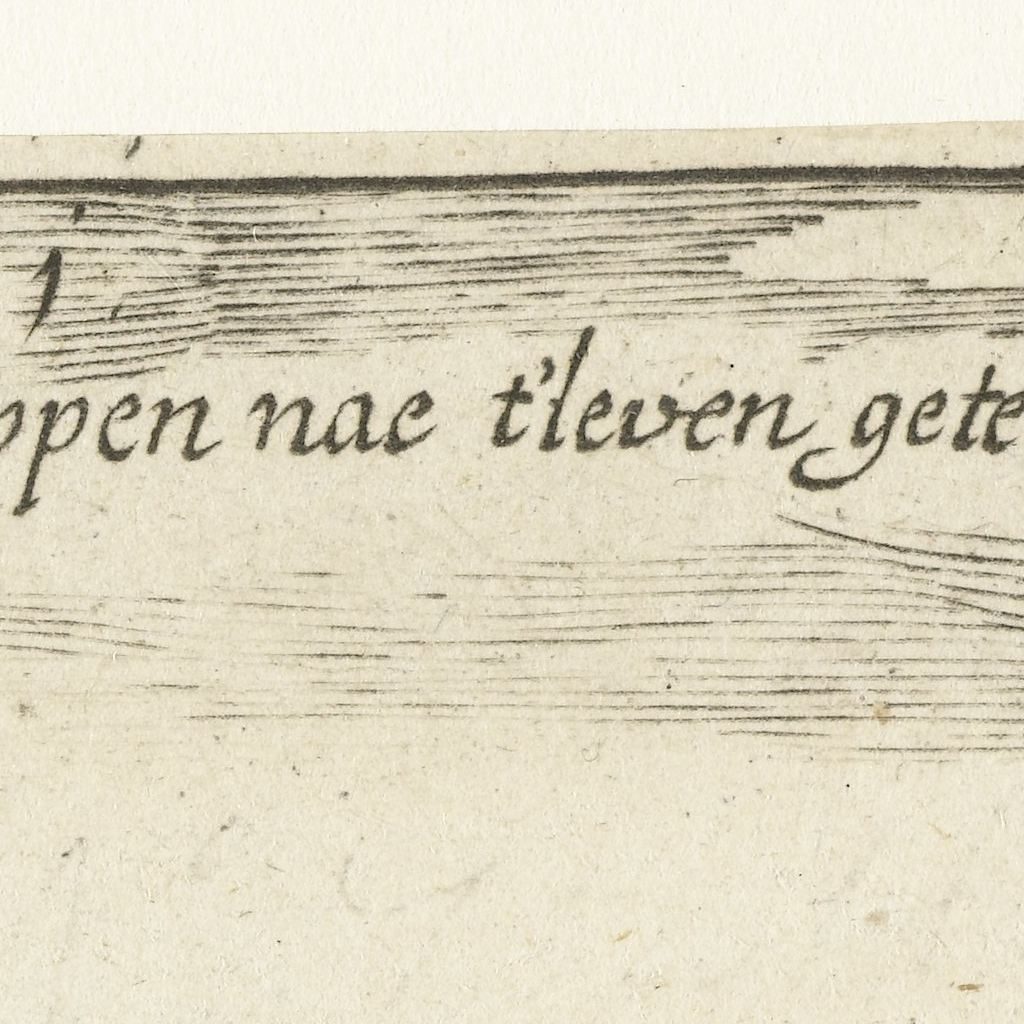 ppen nae t'leven gete